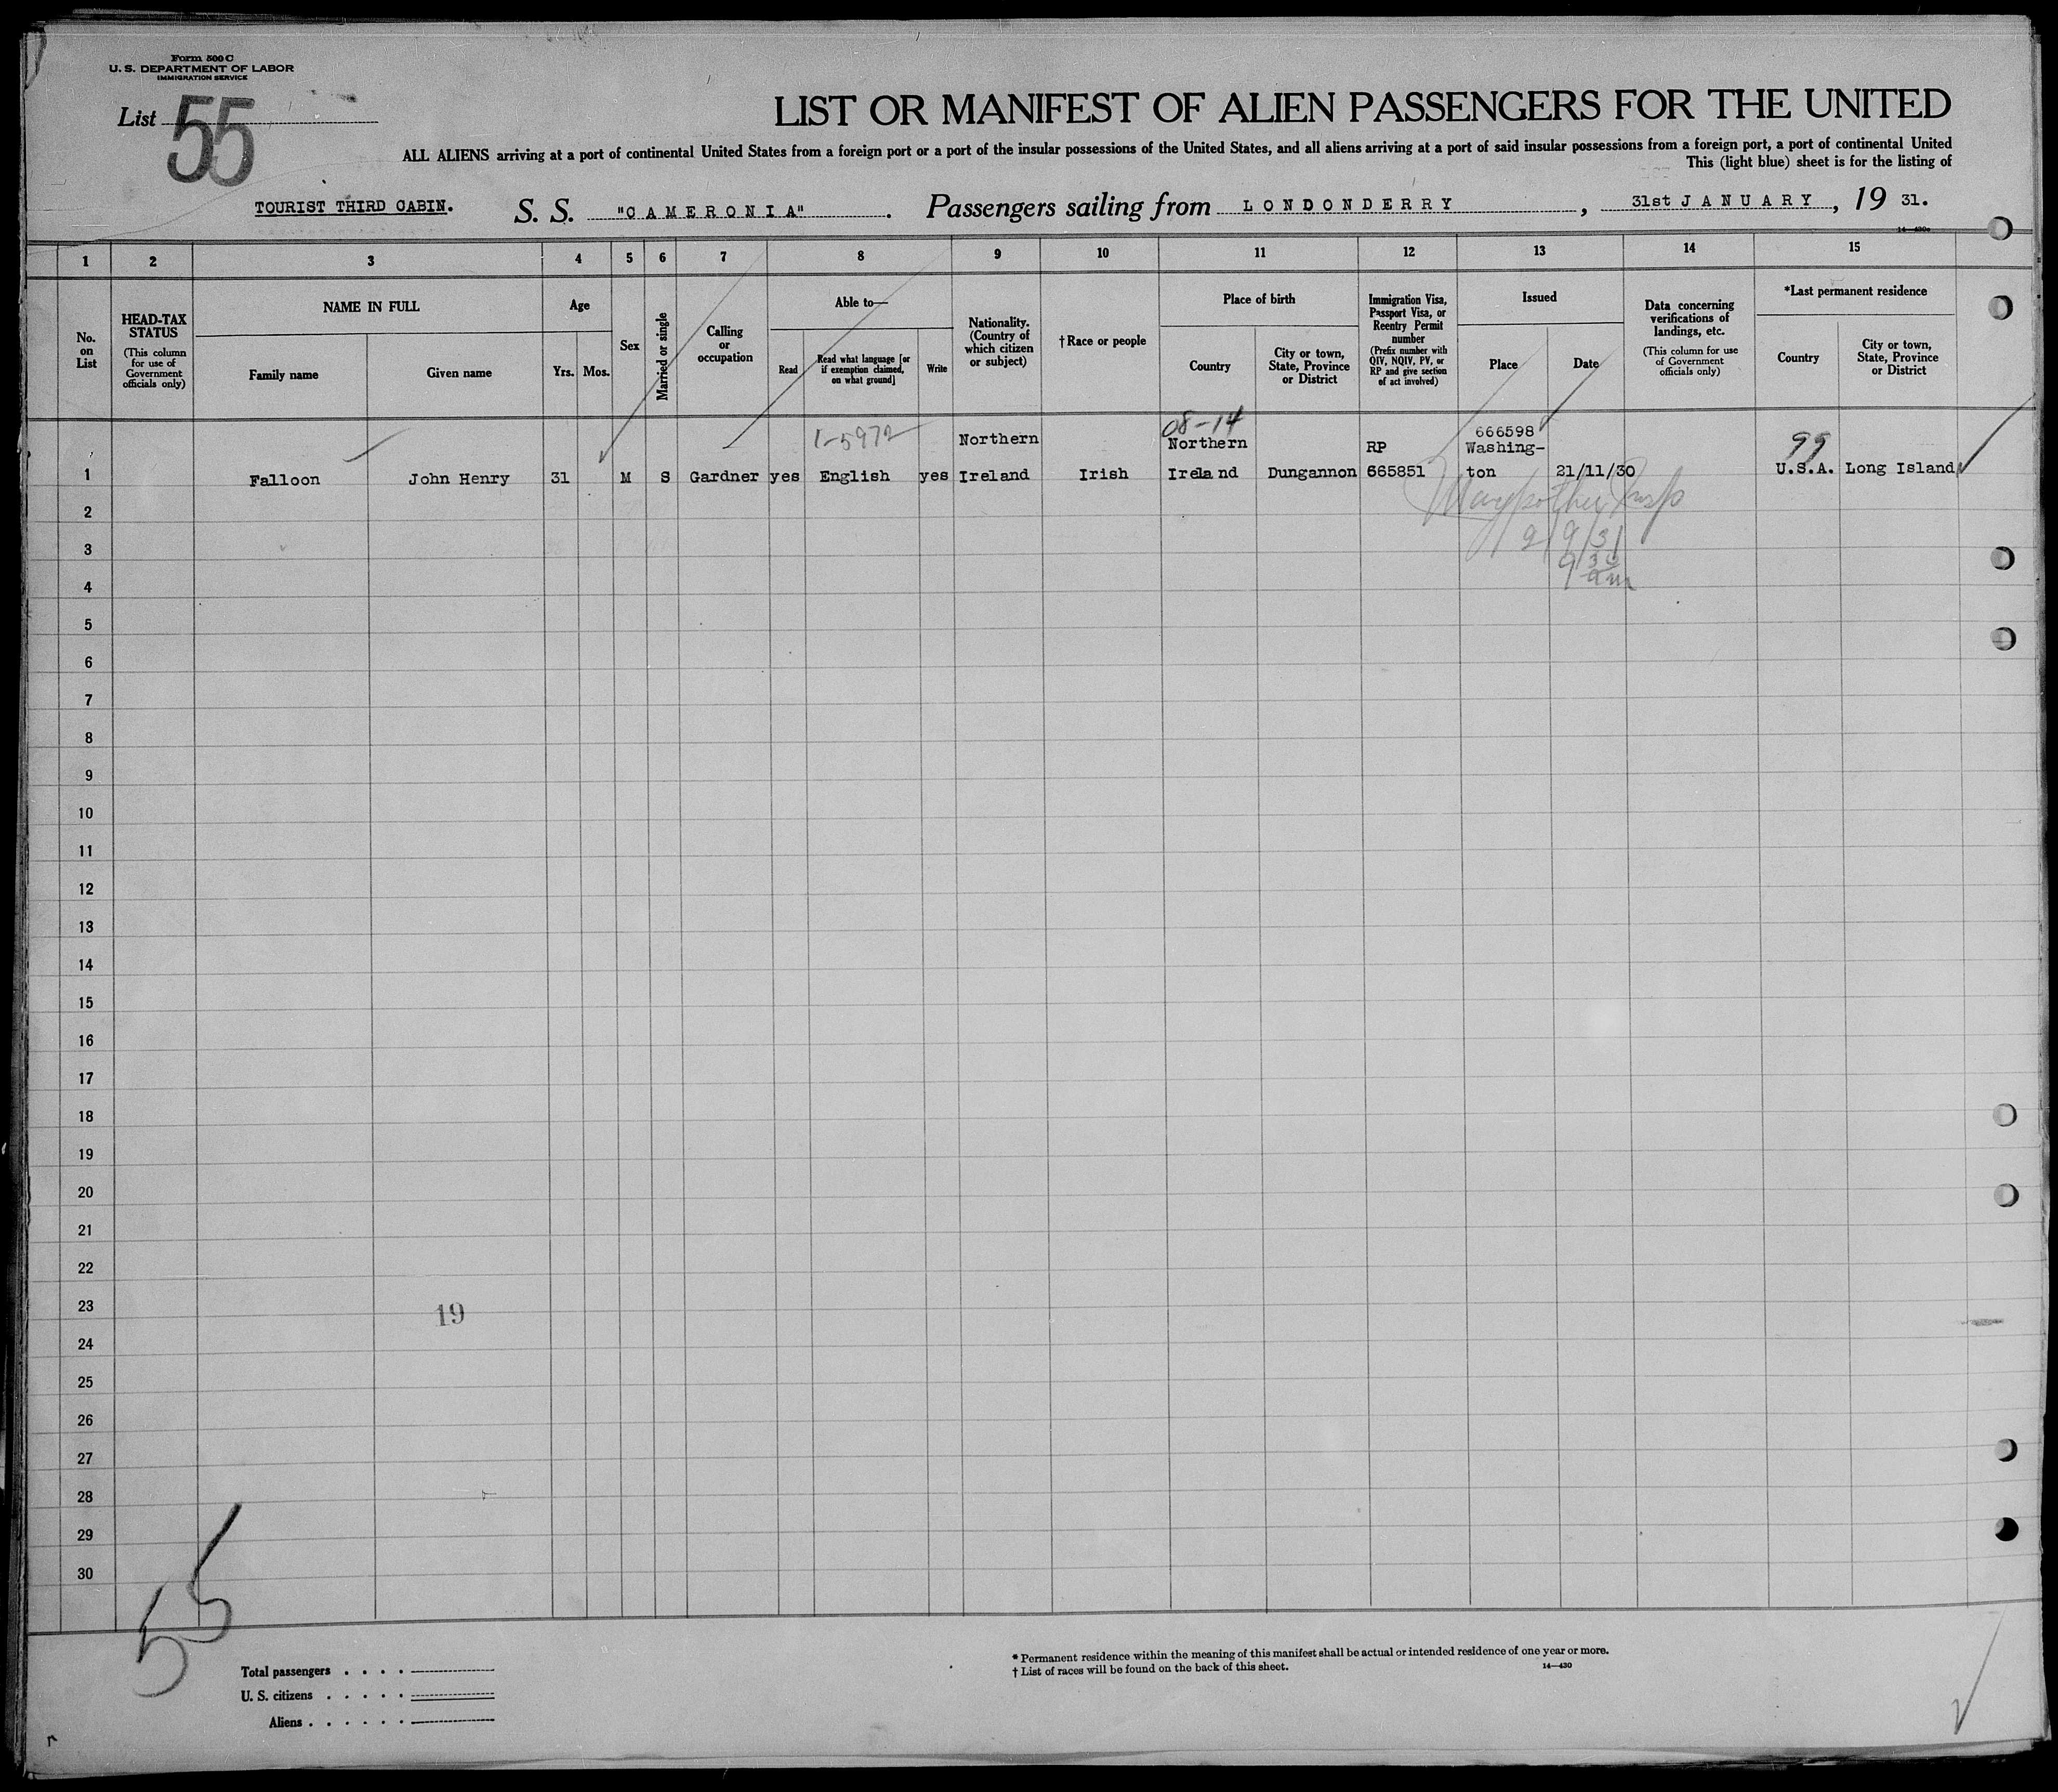 Form 500 C
U. S. DEPARTMENT OF LABOR
IMMIGRATION SERVICE
List 55
LIST OR MANIFEST OF ALIEN PASSENGERS FOR THE UNITED
ALL ALIENS arriving at a port of continental United States from a foreign port or a port of the insular possessions of the United States, and all aliens arriving at a port of said insular possessions from a foreign port, a port of continental United
This (light blue) sheet is for the listing of
TOURIST THIRD CABIN. S. S. "CAMERONIA". Passengers sailing from LONDONDERRY, 31st JANUARY, 19 31.
14—430c
1 2 3 4 5 6 7 8 9 10 11 12 13 14 15
No. on List
HEAD-TAX STATUS
(This column for use of Government officials only)
NAME IN FULL
Family name
Given name
Age
Yrs.
Mos.
Sex
Married or single
Calling or occupation
Able to—
Read
Read what language [or if exemption claimed, on what ground]
Write
Nationality. (Country of which citizen or subject)
† Race or people
Place of birth
Country
City or town, State, Province or District
Immigration Visa, Passport Visa, or Reentry Permit number
(Prefix number with QIV, NQIV, PV, or RP and give section of act involved)
Issued
Place
Date
Data concerning verifications of landings, etc.
(This column for use of Government officials only)
*Last permanent residence
Country
City or town, State, Province or District
1-5972 08-14 666598 99
Northern Northern RP Washing-
1 Falloon John Henry 31 M S Gardner yes English yes Ireland Irish Ireland Dungannon 665851 ton 21/11/30 U.S.A. Long Island
2
2/9/31
3
9 30 am
4
5
6
7
8
9
10
11
12
13
14
15
16
17
18
19
20
21
22
23
19
24
25
26
27
28
29
30
55
Total passengers
U. S. citizens
Aliens
* Permanent residence within the meaning of this manifest shall be actual or intended residence of one year or more.
† List of races will be found on the back of this sheet.
14—430